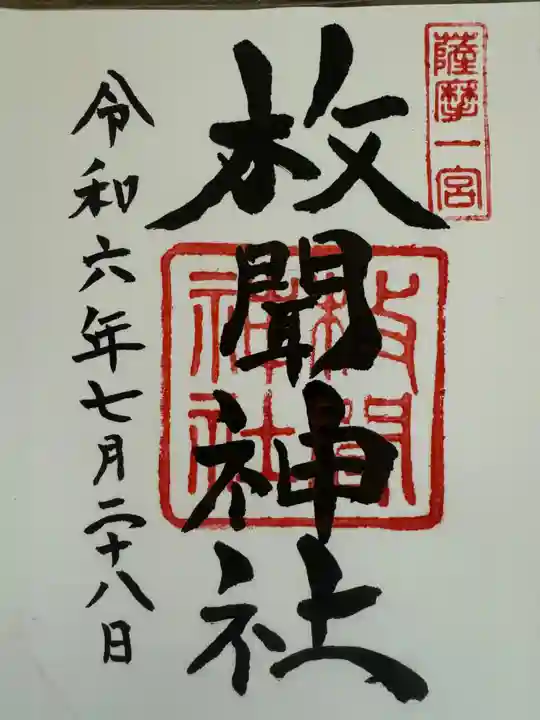 薩摩一宮
枚聞神社
枚聞
神社
令和六年七月二十八日